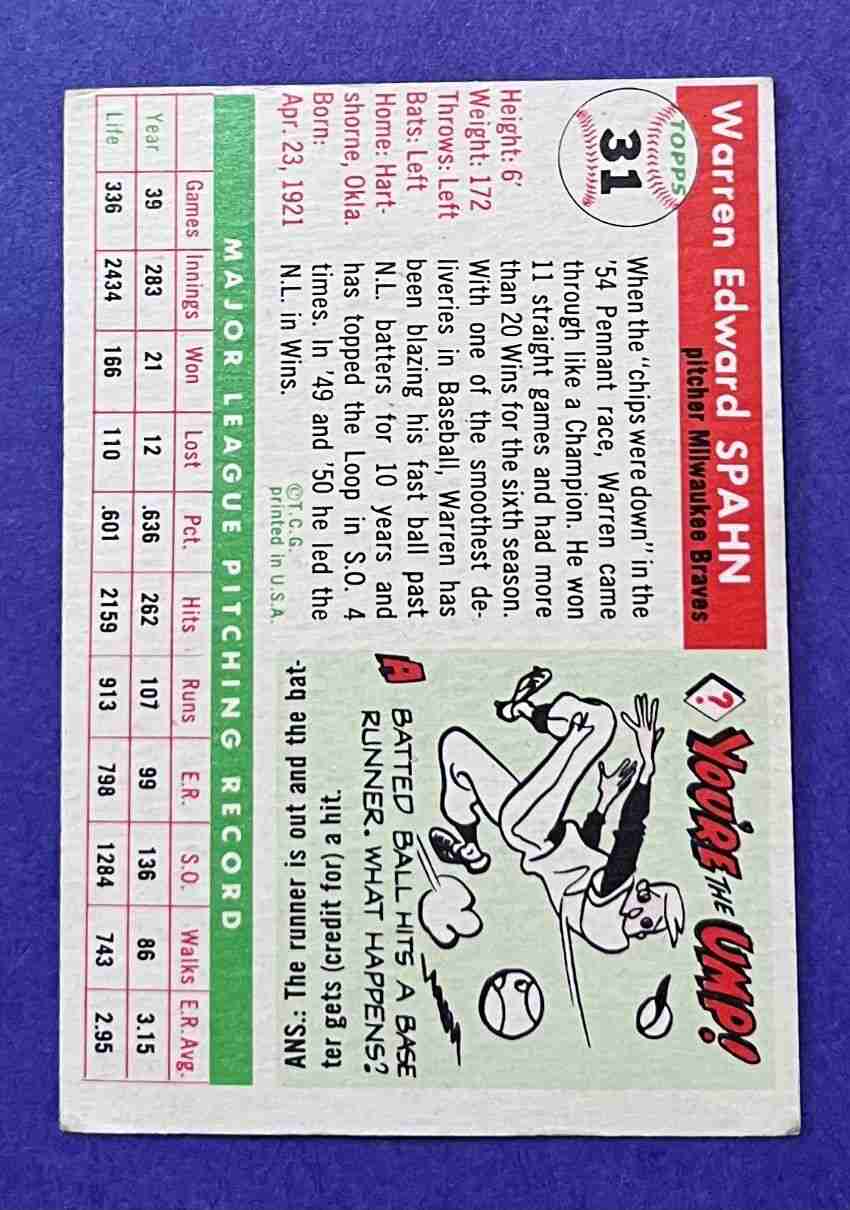 Warren Edward SPAHN
pitcher Milwaukee Braves
TOPPS
31
Height: 6'
Weight: 172
Throws: Left
Bats: Left
Home: Hart-
shorne, Okla.
Born:
Apr. 23, 1921
When the "chips were down" in the
'54 Pennant race, Warren came
through like a Champion. He won
11 straight games and had more
than 20 Wins for the sixth season.
With one of the smoothest de-
liveries in Baseball, Warren has
been blazing his fast ball past
N.L. batters for 10 years and
has topped the Loop in S.O. 4
times. In '49 and '50 he led the
N.L. in Wins.
©T.C.G.
printed in U.S.A.
? YOU'RE THE UMP!
A BATTED BALL HITS A BASE
RUNNER. WHAT HAPPENS?
ANS.: The runner is out and the bat-
ter gets (credit for) a hit.
MAJOR LEAGUE PITCHING RECORD
Games Innings Won Lost Pct. Hits Runs E.R. S.O. Walks E.R. Avg.
Year 39 283 21 12 .636 262 107 99 136 86 3.15
Life 336 2434 166 110 .601 2159 913 798 1284 743 2.95